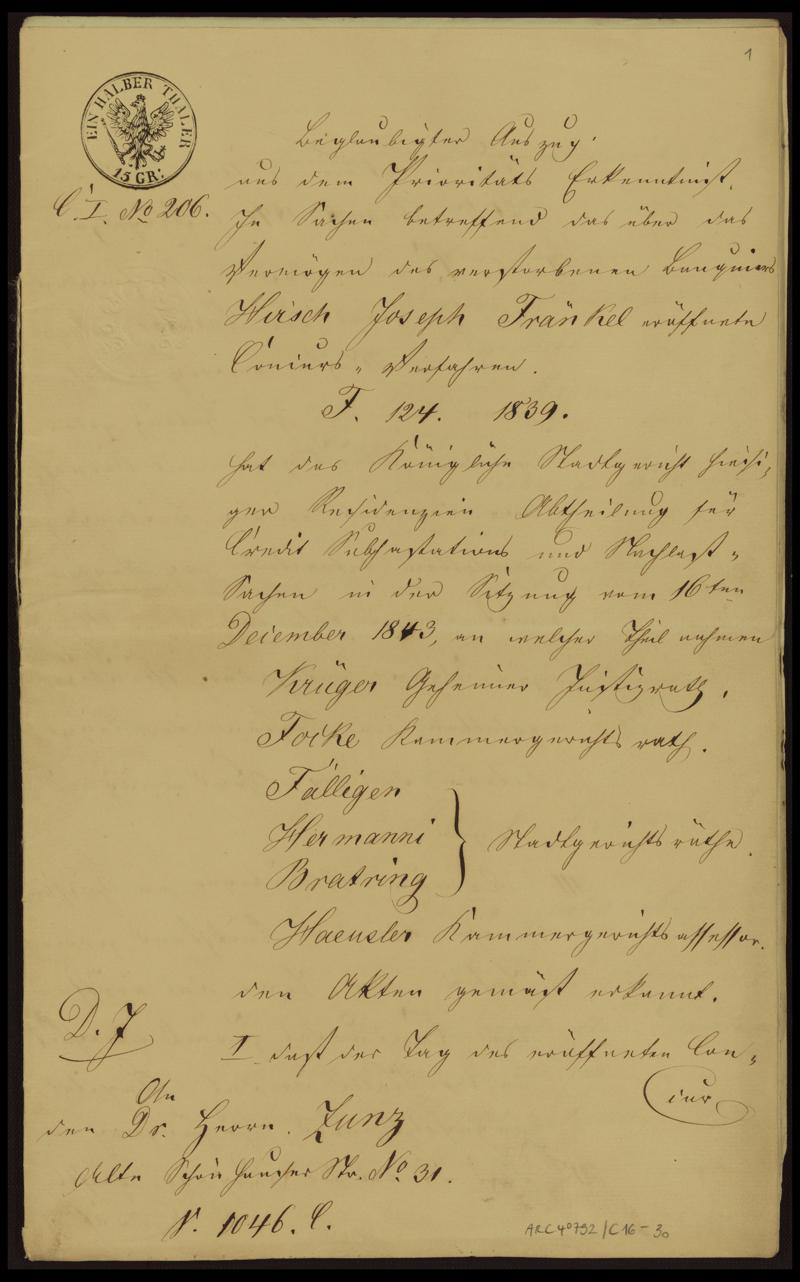 1
EIN HALBER THALER
15 GR:
C. I. No 206.
Beglaubigter Auszug
aus dem Prioritäts Erkenntniß.
In Sachen betreffend das über das
Vermögen des verstorbenen Banquiers
Hirsch Joseph Fränkel eröffnete
Concurs-Verfahren.
F. 124. 1839.
hat das Königliche Stadtgericht hiesi-
ger Residenzien Abtheilung für
Credit Subhastations und Nachlaß-
Sachen in der Sitzung vom 16ten
December 1843, an welcher Theil nahmen
Krüger Geheimer Justizrath,
Focke Kammergerichts rath.
Fälligen
Hermanni
Bratring
Stadtgerichtsräthe.
Haeusler Kammergerichtsassessor.
den Akten gemäß erkannt.
I daß der Tag des eröffneten Con-
cur
D. J
An
den Dr. Herrn. Zunz
Alte Schönhauser Str. No 31.
N. 1046. C.
ARC 4° 792 / C16-30